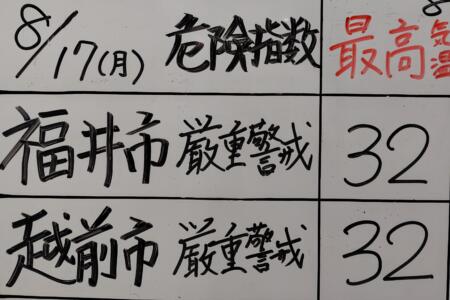 8/17(月) 危険指数 最高気温
福井市 厳重警戒 32
越前市 厳重警戒 32